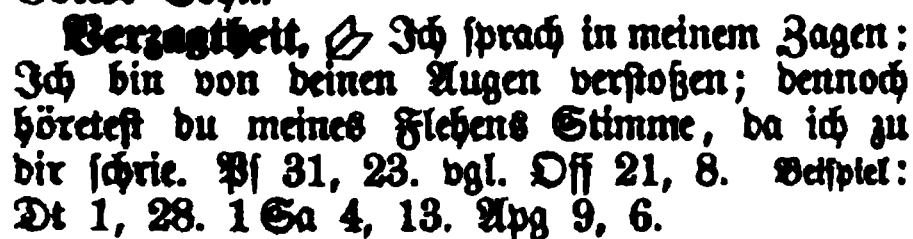 Verzagtheit, Ich sprach in meinem Zagen:
Ich bin von deinen Augen verstoßen; dennoch
höretest du meines Flehens Stimme, da ich zu
dir schrie. Ps 31, 23. vgl. Off 21, 8. Beispiel:
Dt 1, 28. 1 Sa 4, 13. Apg 9, 6.